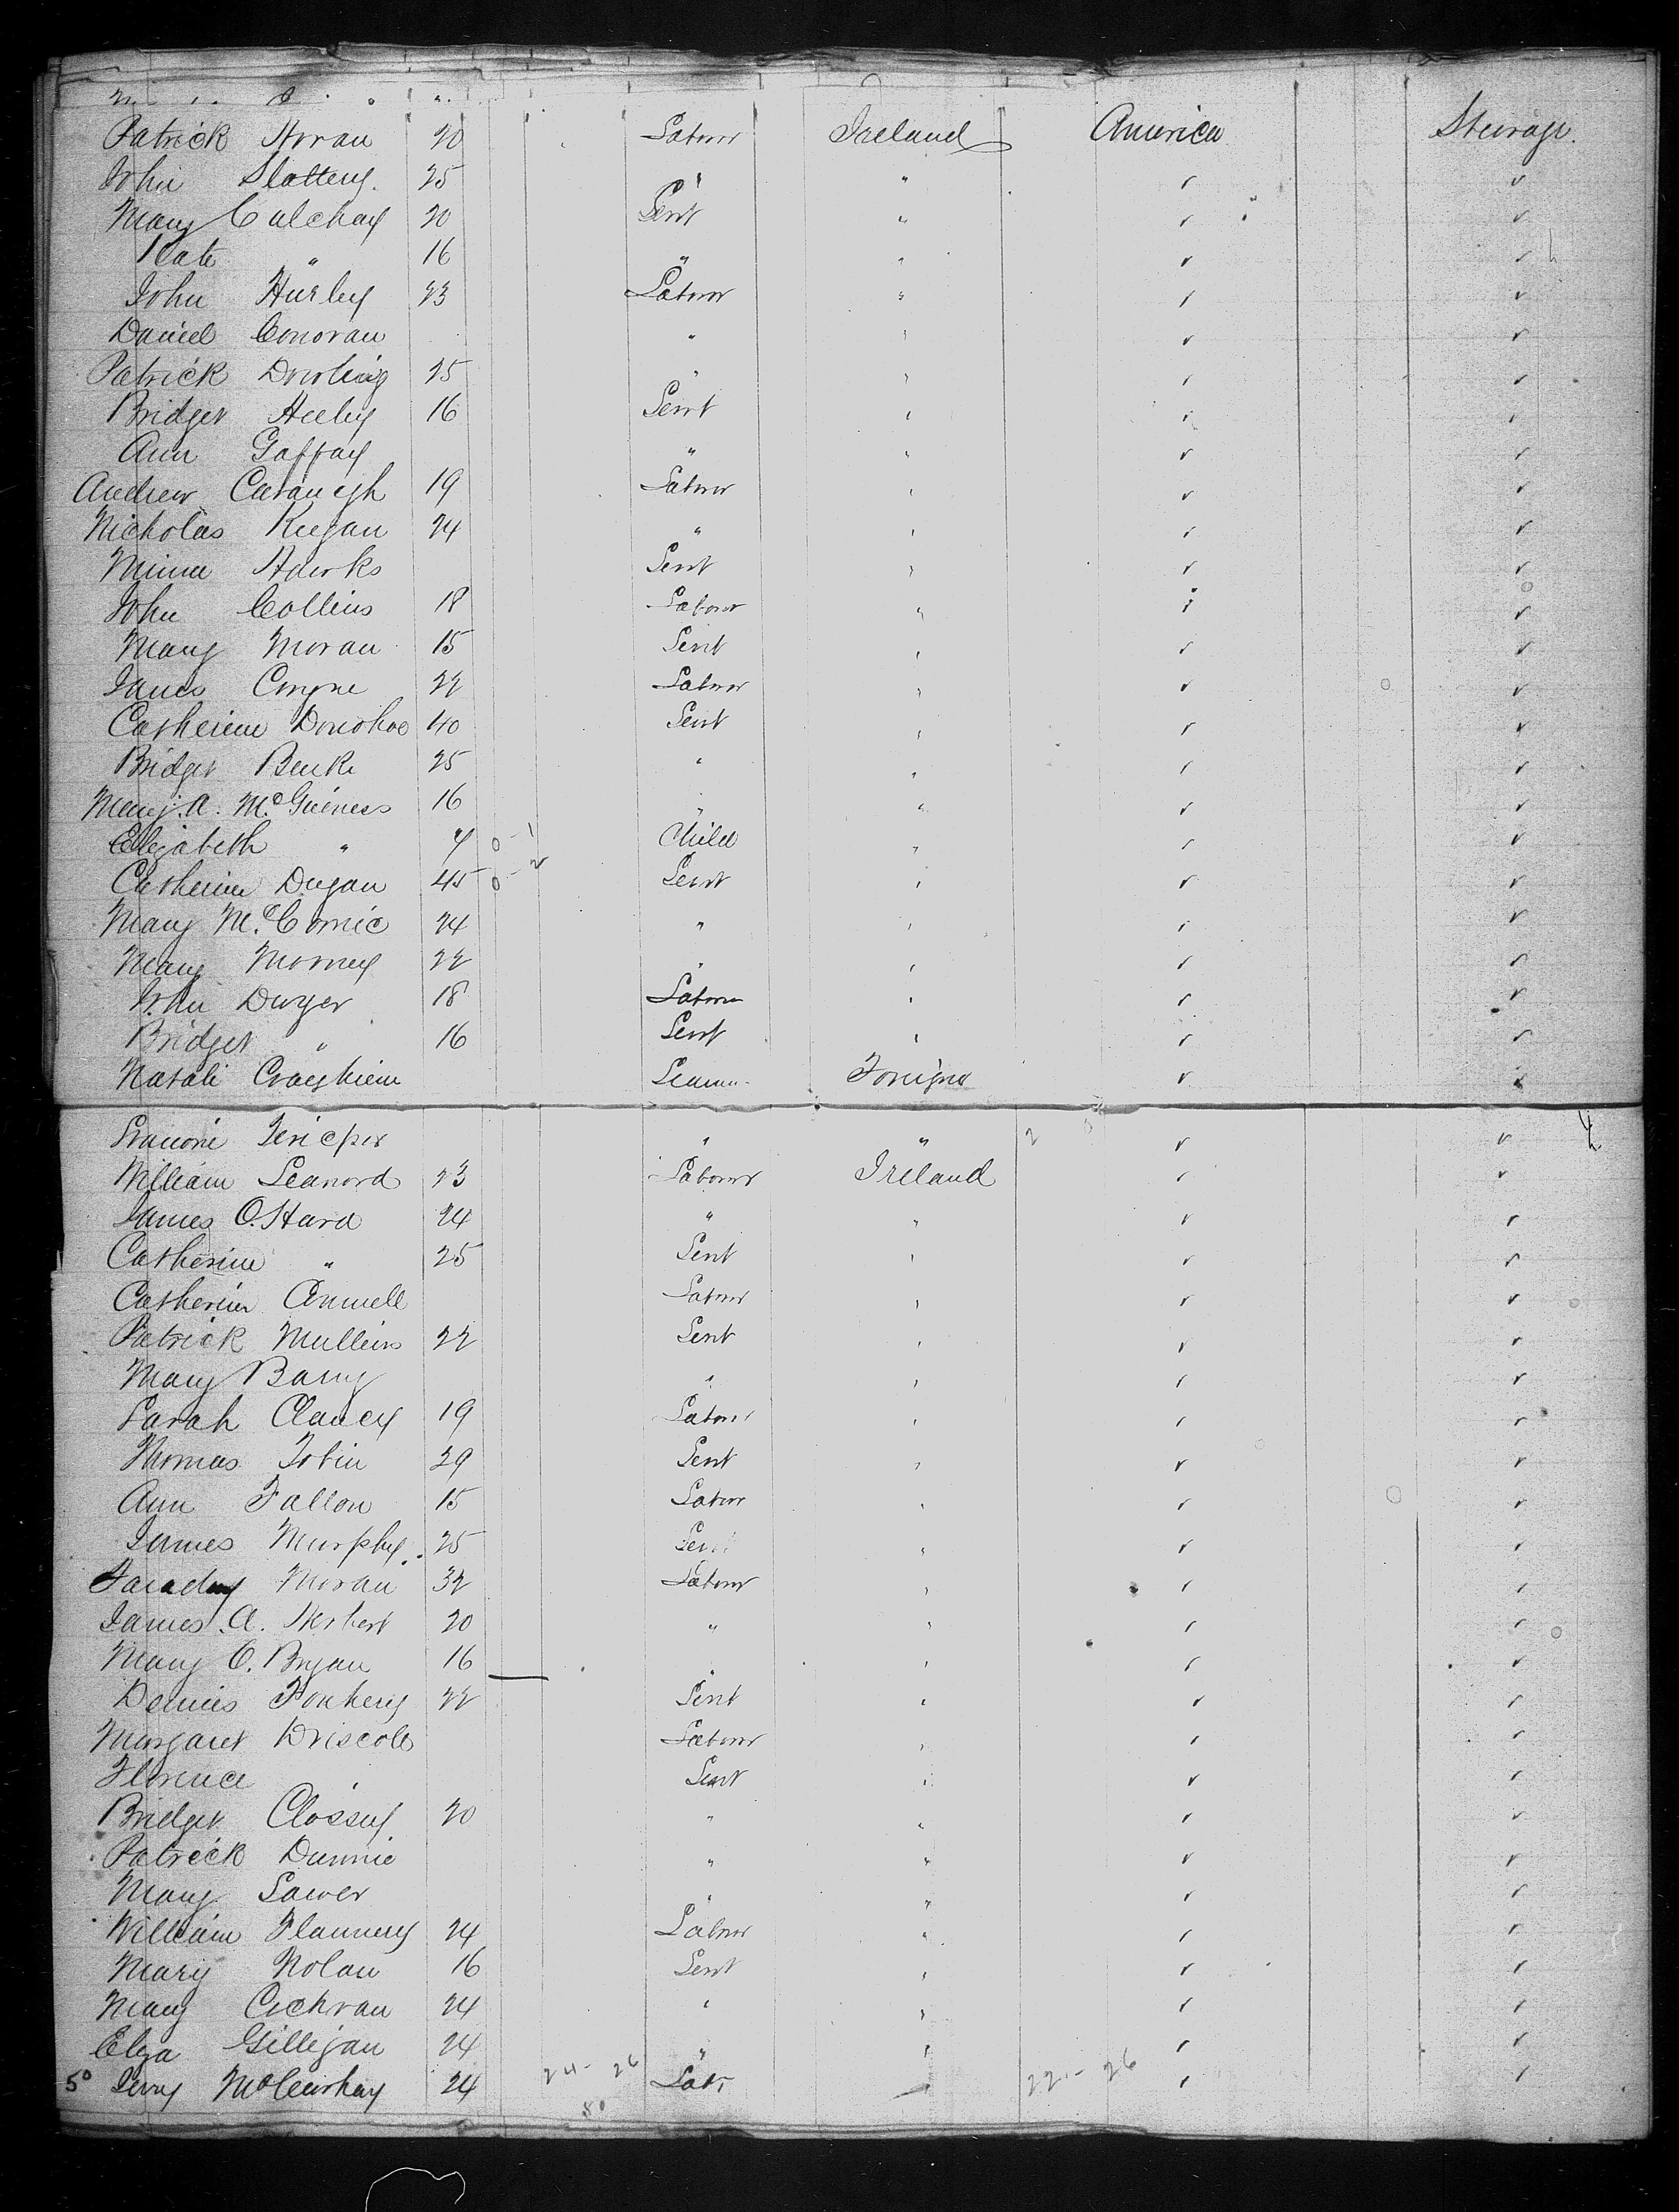 Patrick Horan 20 Laborer Ireland America Steerage.
John Slattery. 25 " " " "
Mary Culchay 20 Servt " " "
Kate " 16 " " " "
John Hurley 23 Laborer " " "
Daniel Conovan " " " "
Patrick Dowling 25 " " " "
Bridget Heeley 16 Servt " " "
Ann Gaffay " " " "
Andrew Cavanagh 19 Laborer " " "
Nicholas Keegan 24 " " " "
Hawks Servt " " "
John Collins 18 Laborer " " "
Mary Moran 15 Servt " " "
James Coyne 22 Laborer " " "
Catherine Donohoe 40 Servt " " "
Bridget Burke 25 " " " "
Mary. A. McGuiness 16 " " " "
Elizabeth " 4 0-1 Child " " "
Catherine Dugan 45 0-2 Servt " " "
Mary McComic 24 " " " "
Mary Morney 22 " " " "
John Dwyer 18 Laborer " " "
Bridget " 16 Servt " " "
Natali Foreigner " "
" " " "
William Leanord 23 Laborer Ireland " "
James O.Hara 24 " " " "
Catherine " 25 Servt " " "
Catherine Connell Laborer " " "
Patrick Mullins 22 Servt " " "
Mary Barry " " " "
Sarah Clancy 19 Laborer " " "
Thomas Tobin 29 Servt " " "
Ann Fallon 15 Laborer " " "
James Murphy. 25 Servt " " "
Moran 32 Laborer " " "
James. A. Herbert 20 " " " "
Mary O.Bryan 16 " " " "
Dennis 22 Servt " " "
Margaret Driscoll Laborer " " "
Florence " Servt " " "
Bridget Clossey 20 " " " "
Patrick Dunnie " " " "
Mary Sawer " " " "
William Flannery 24 Laborer " " "
Mary Nolan 16 Servt " " "
Mary Cochran 24 " " " "
Eliza Gillegan 24 " " " "
50 24 24-26 Labr " 22-26 " "